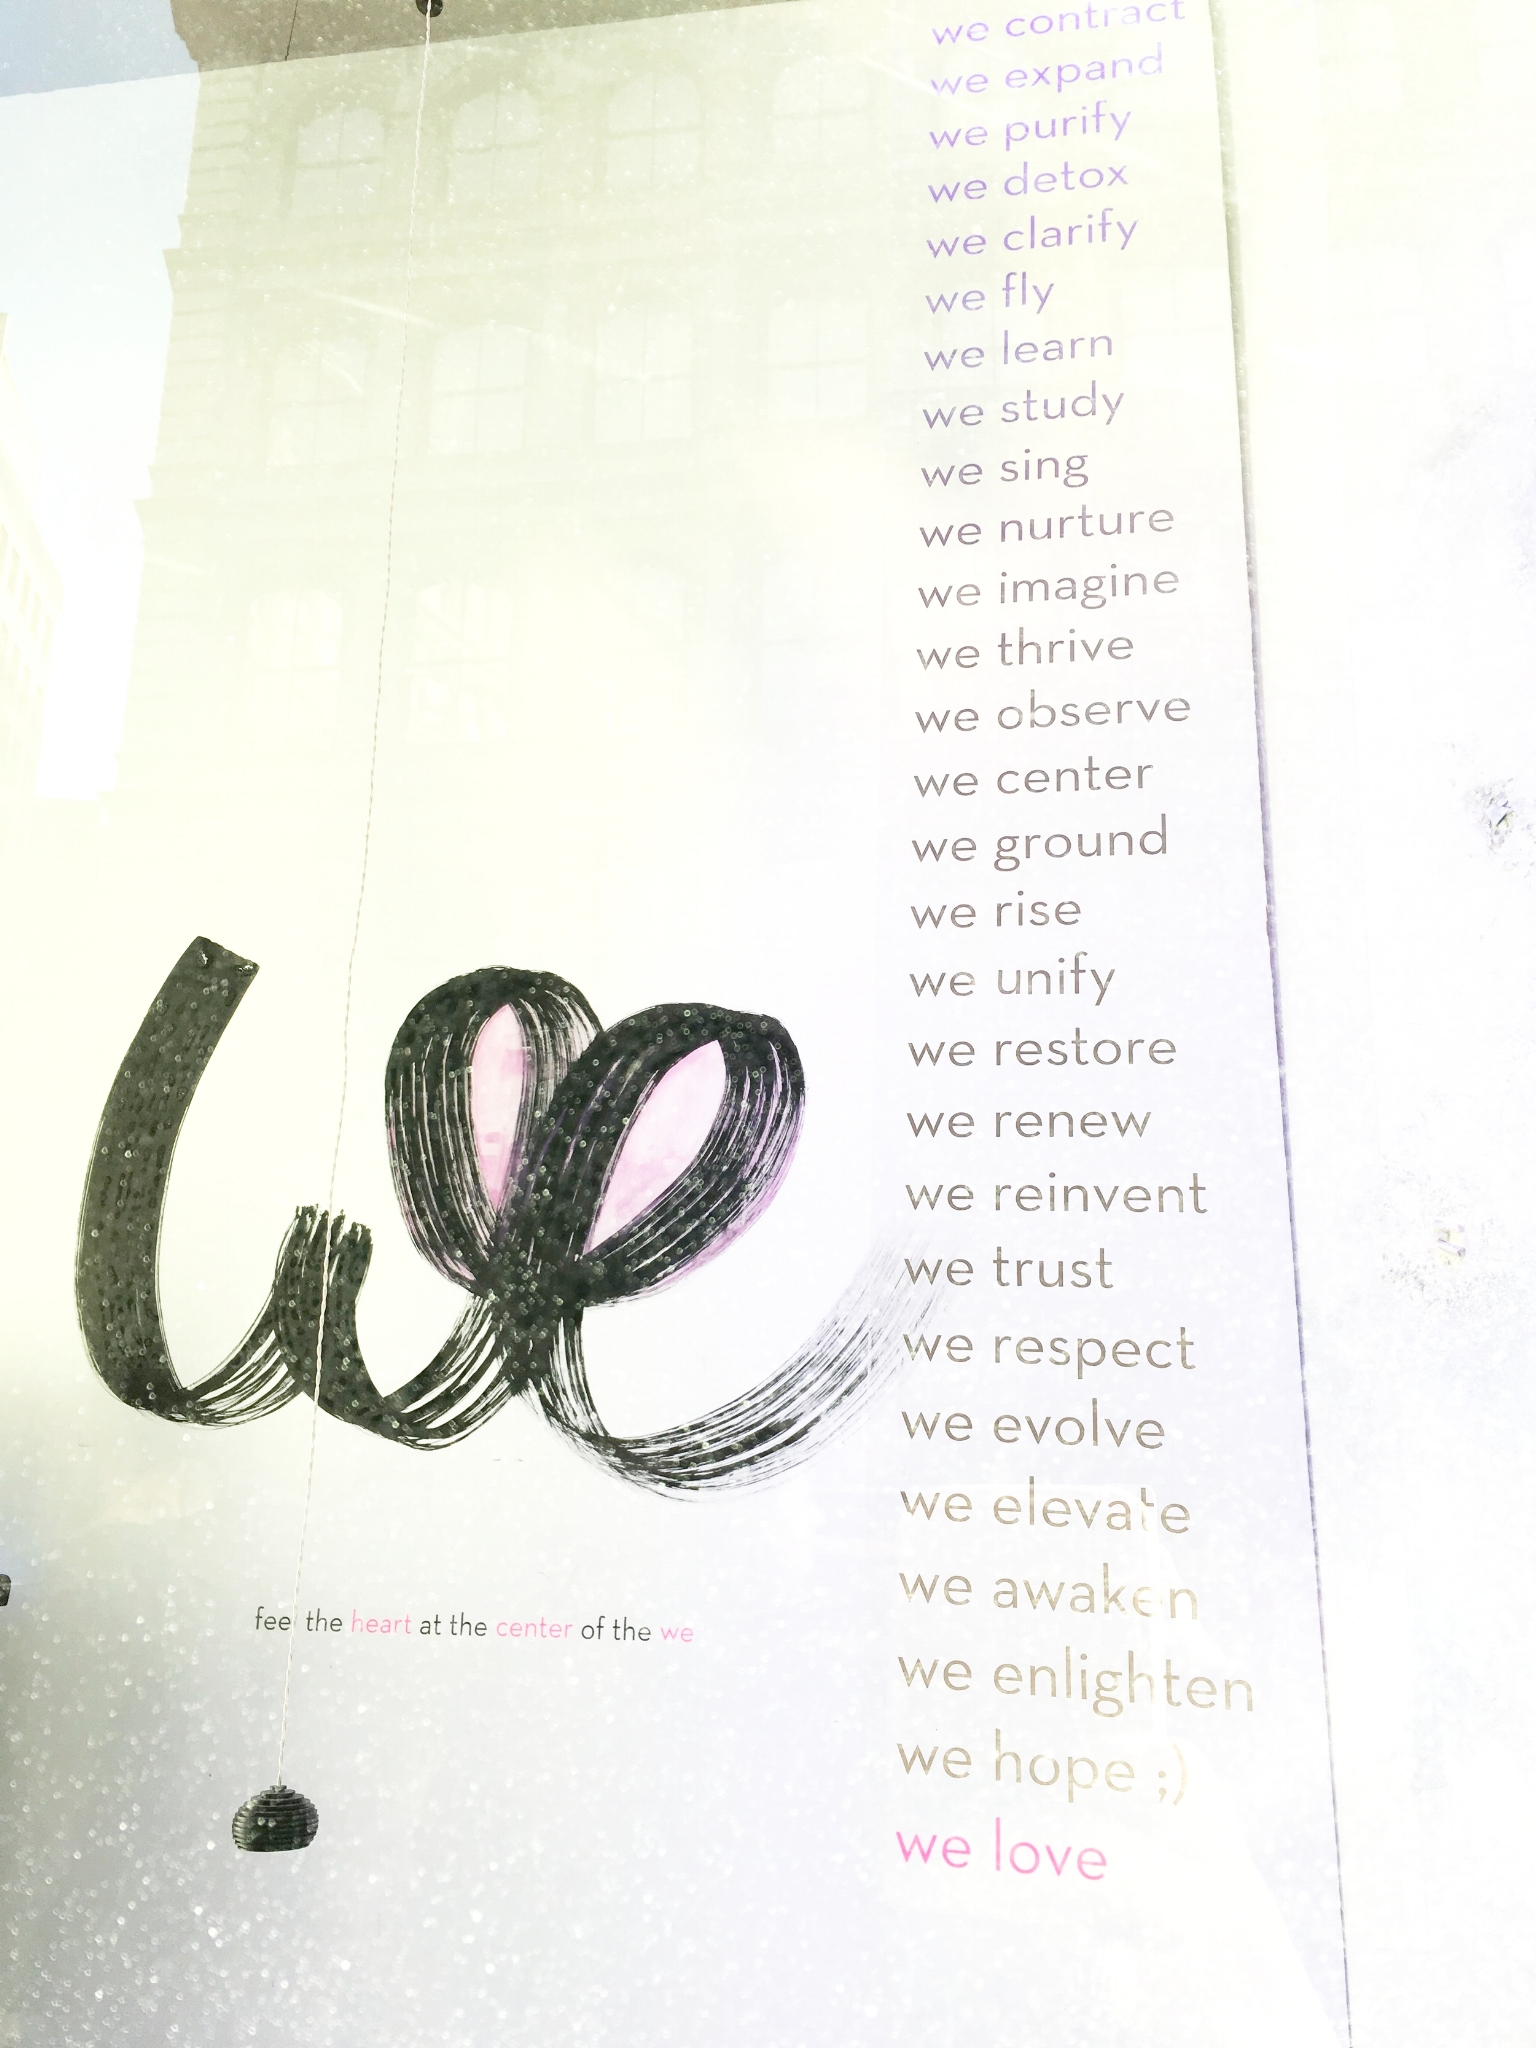 we contract
we expand
we purify
we detox
we clarify
we fly
we learn
we study
we sing
we nurture
we imagine
we thrive
we observe
we center
we ground
we rise
we unify
we restore
we renew
we reinvent
we trust
we respect
we evolve
we elevate
we awaken
we enlighten
we hope ;)
we love
we
feel the heart at the center of the we